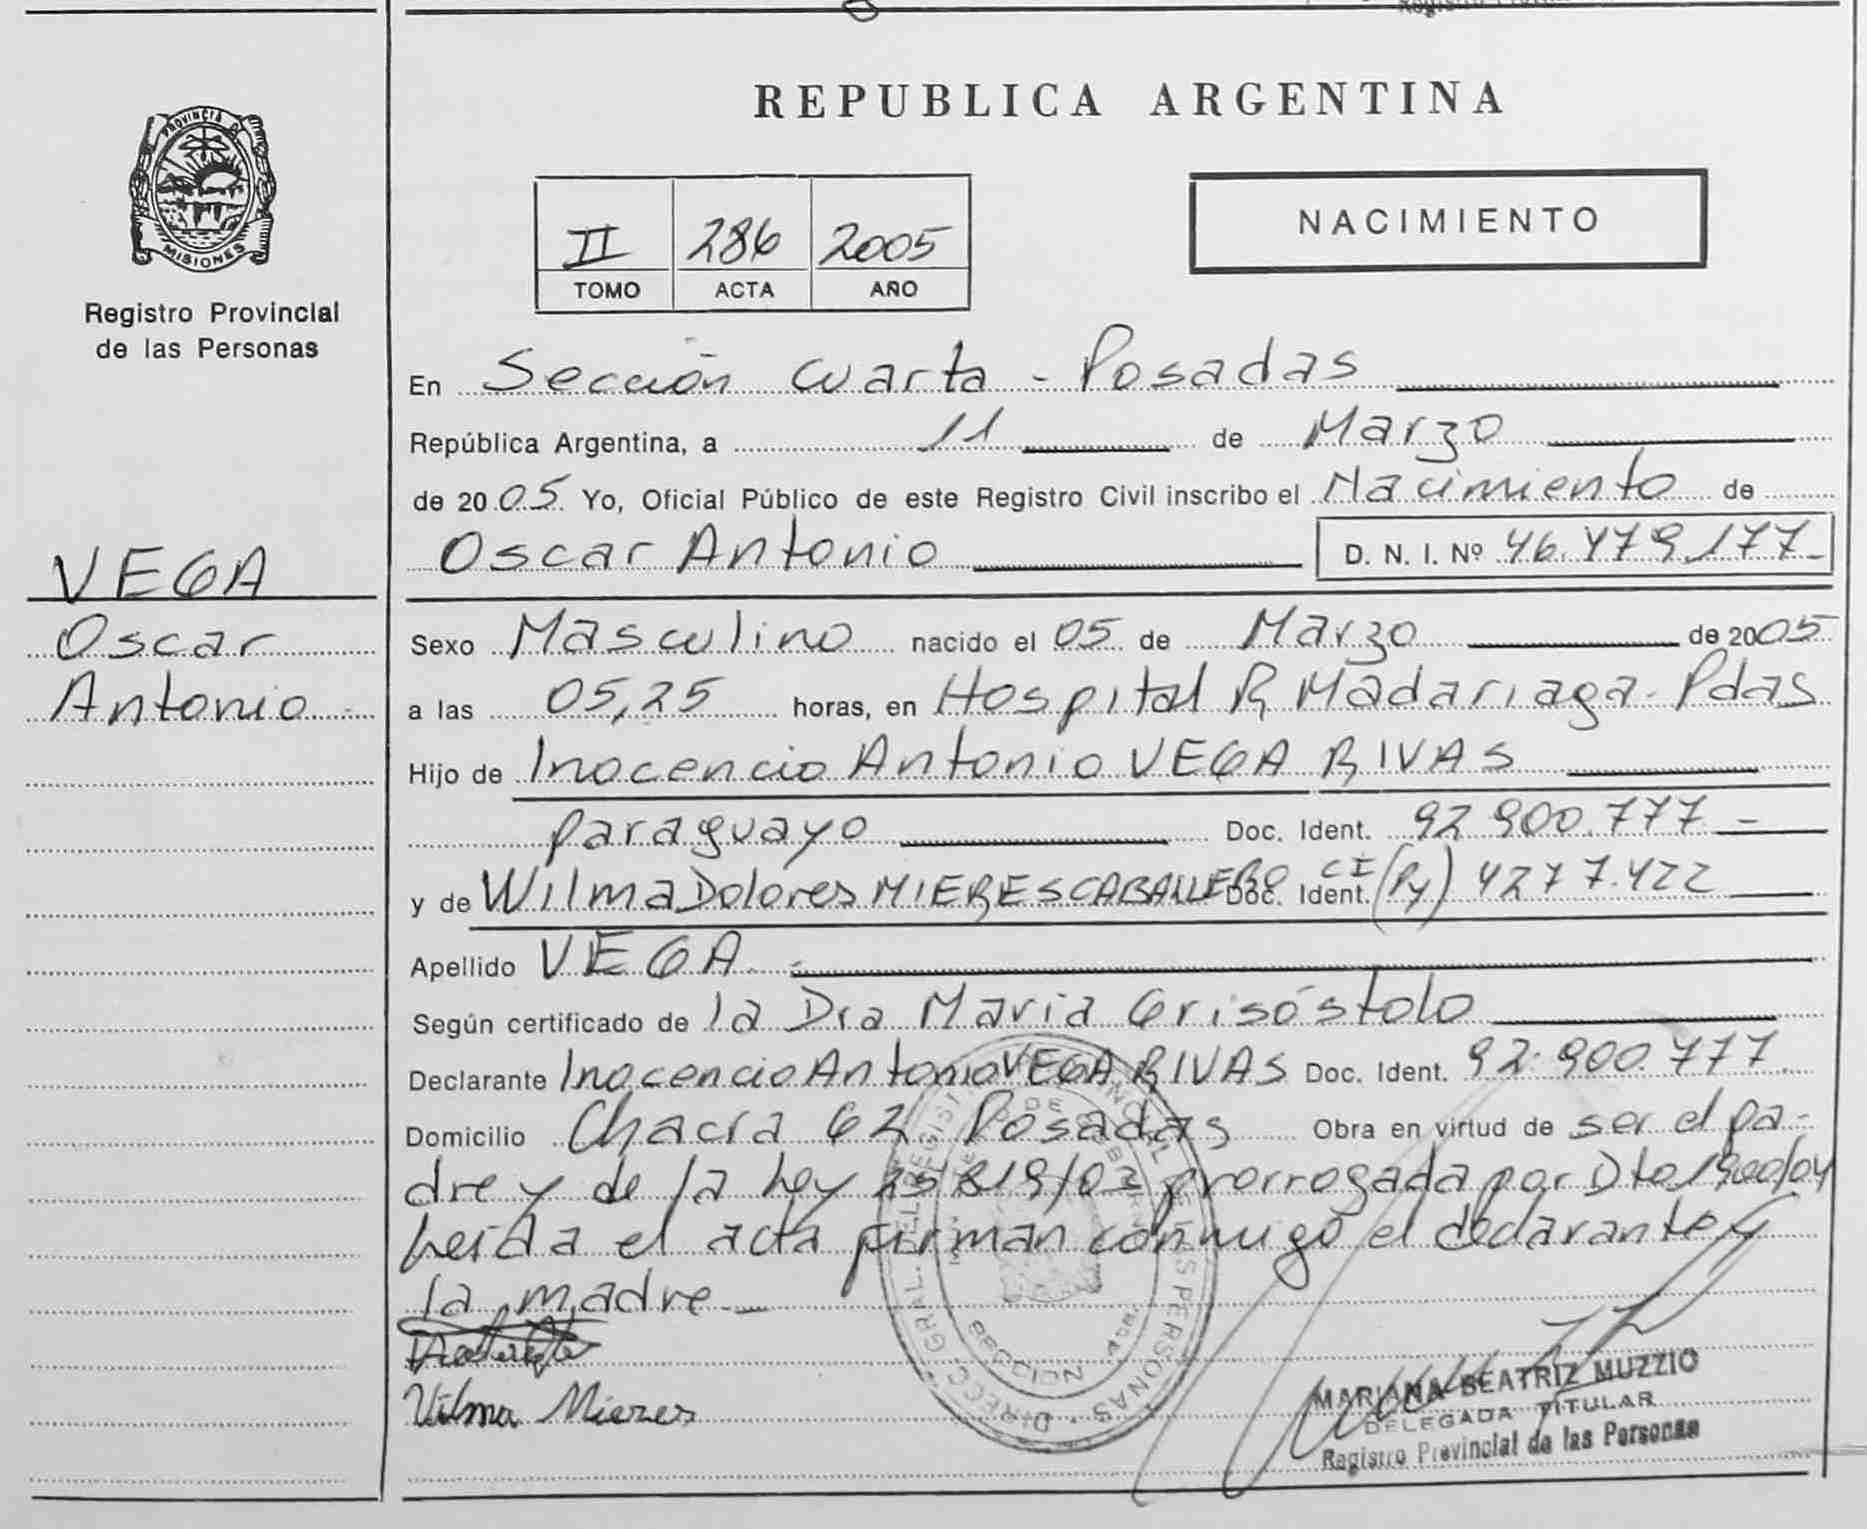 REPUBLICA ARGENTINA
PROVINCIA DE
MISIONES
Registro Provincial
de las Personas
II 286 2005
TOMO ACTA AÑO
NACIMIENTO
En Sección Cuarta - Posadas
República Argentina, a 11 de Marzo
de 2005 Yo, Oficial Público de este Registro Civil inscribo el Nacimiento de
Oscar Antonio D. N. I. Nº 46.479.177-
VEGA
Oscar
Antonio
Sexo Masculino nacido el 05 de Marzo de 2005
a las 05,25 horas, en Hospital R Madariaga - Pdas
Hijo de Inocencio Antonio VEGA RIVAS
paraguayo Doc. Ident. 92.900.777-
y de Wilma Dolores MIERES CABALLERO Doc. Ident. CI (Py) 4277.422
Apellido VEGA.-
Según certificado de la Dra Maria Grisóstolo
Declarante Inocencio Antonio VEGA RIVAS Doc. Ident. 92.900.777
Domicilio Chacra 62 Posadas Obra en virtud de ser el pa-
dre y de la Ley 25819/03 prorrogada por Dto 1900/04
Leida el acta firman conmigo el declarante y
la madre-
Vilma Mieres
MARIANA BEATRIZ MUZZIO
DELEGADA TITULAR
Registro Provincial de las Personas